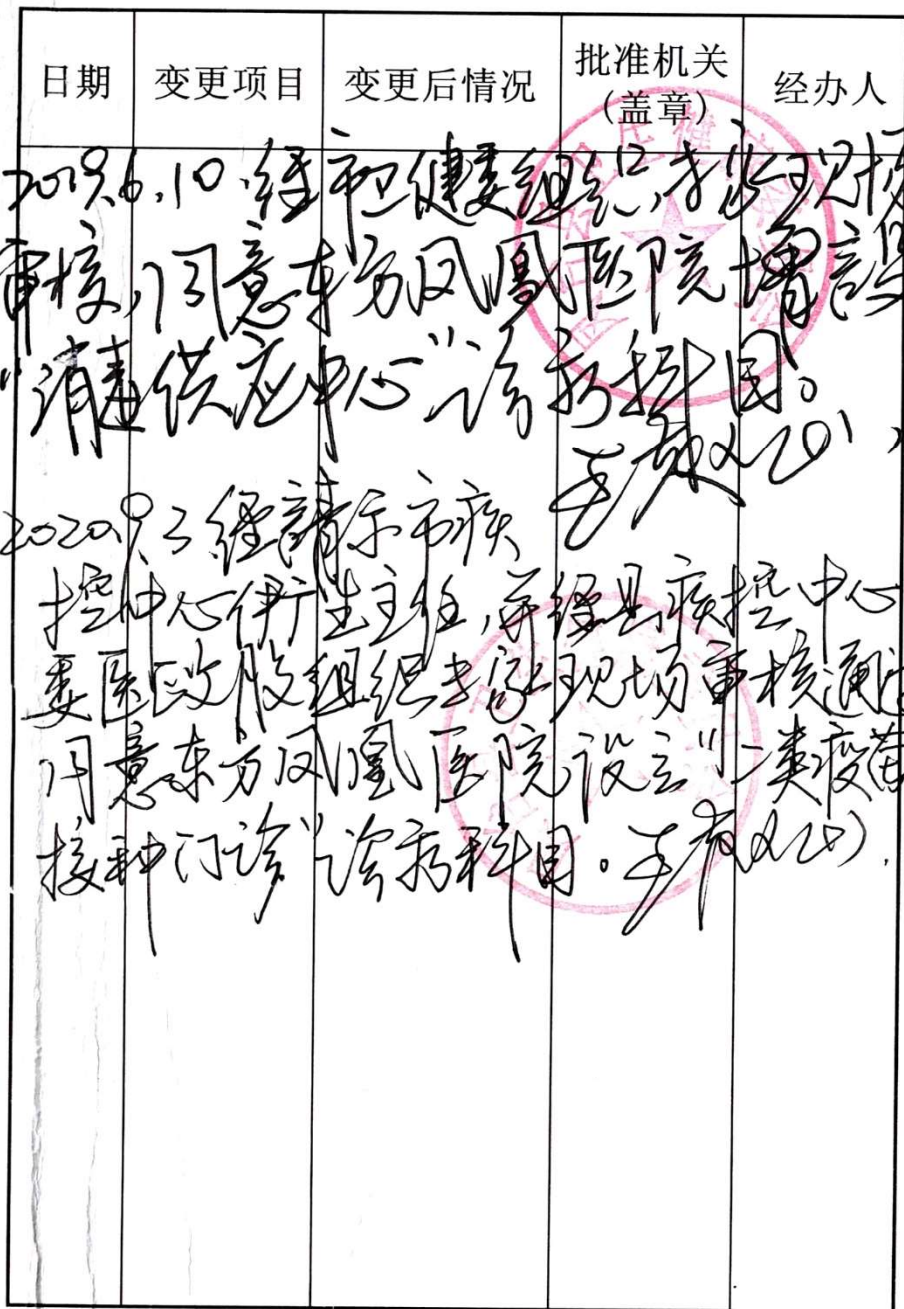 日期 变更项目 变更后情况 批准机关(盖章) 经办人
2019.6.10.经市卫健委组织专家现场
审核,同意东方凤凰医院增设
“消毒供应中心”诊疗科目。
2020.9.3经请示市疾
控中心伊广生主任,并经县疾控中心
委医政股组织专家现场审核通过
同意东方凤凰医院设立“二类疫苗
接种门诊”诊疗科目。